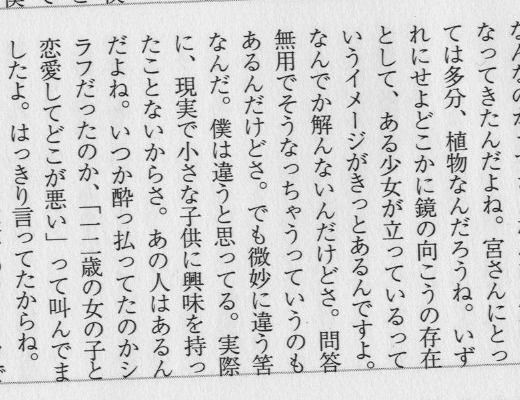 なってきたんだよね。宮さんにとっ
ては多分、植物なんだろうね。いず
れにせよどこかに鏡の向こうの存在
として、ある少女が立っているって
いうイメージがきっとあるんですよ。
なんでか解んないんだけどさ。問答
無用でそうなっちゃうっていうのも
あるんだけどさ。でも微妙に違う筈
なんだ。僕は違うと思ってる。実際
に、現実で小さな子供に興味を持っ
たことないからさ。あの人はあるん
だよね。いつか酔っ払ってたのかシ
ラフだったのか、「一二歳の女の子と
恋愛してどこが悪い」って叫んでま
したよ。はっきり言ってたからね。